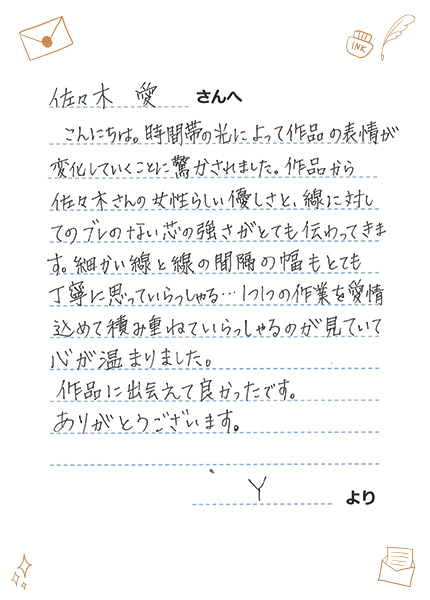 INK
佐々木 愛 さんへ
こんにちは。時間帯の光によって作品の表情が
変化していくことに驚かされました。作品から
佐々木さんの女性らしい優しさと、線に対し
てのブレのない芯の強さがとても伝わってきま
す。細かい線と線の間隔の幅もとても
丁寧に思っていらっしゃる…1つ1つの作業を愛情
込めて積み重ねていらっしゃるのが見ていて
心が温まりました。
作品に出会えて良かったです。
ありがとうございます。
Y より